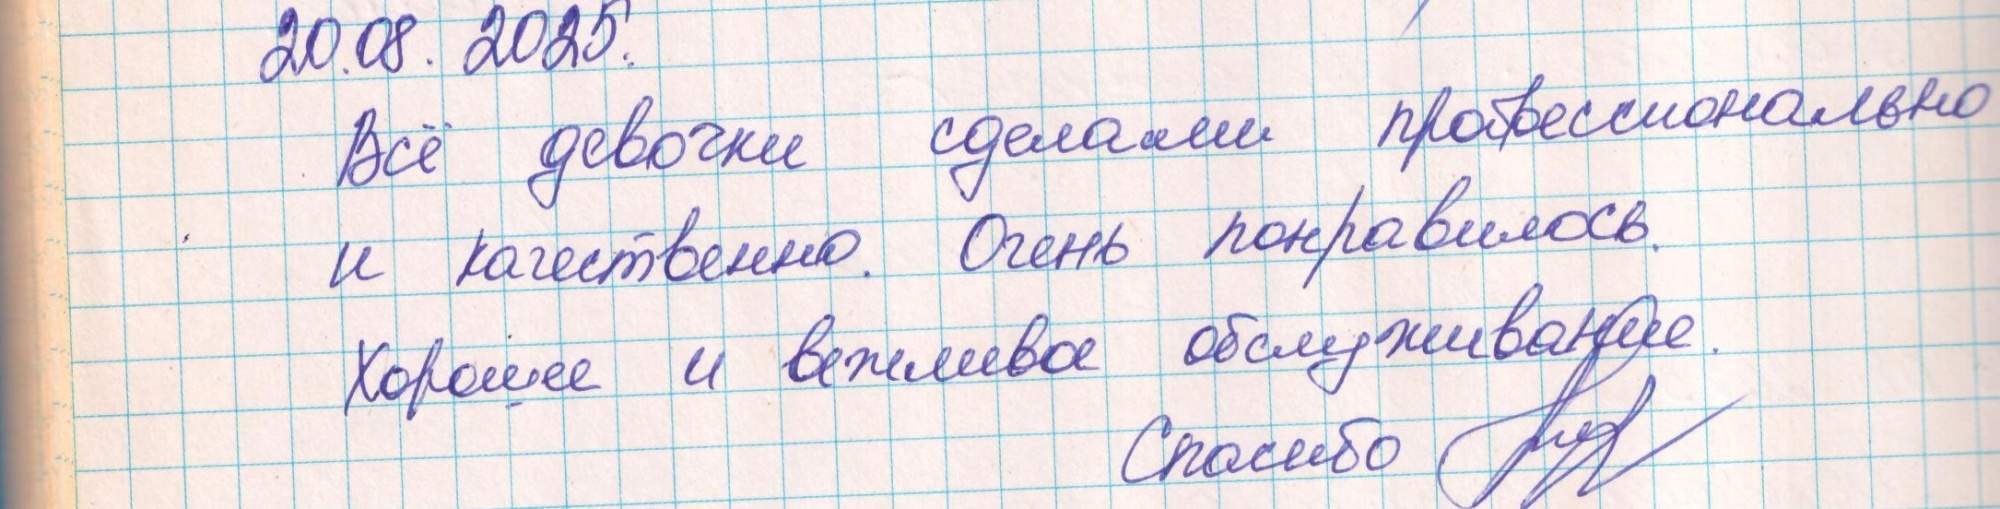 20.08.2025.
Всё девочки сделали профессионально
и качественно. Очень понравилось.
Хорошее и вежливое обслуживание.
Спасибо